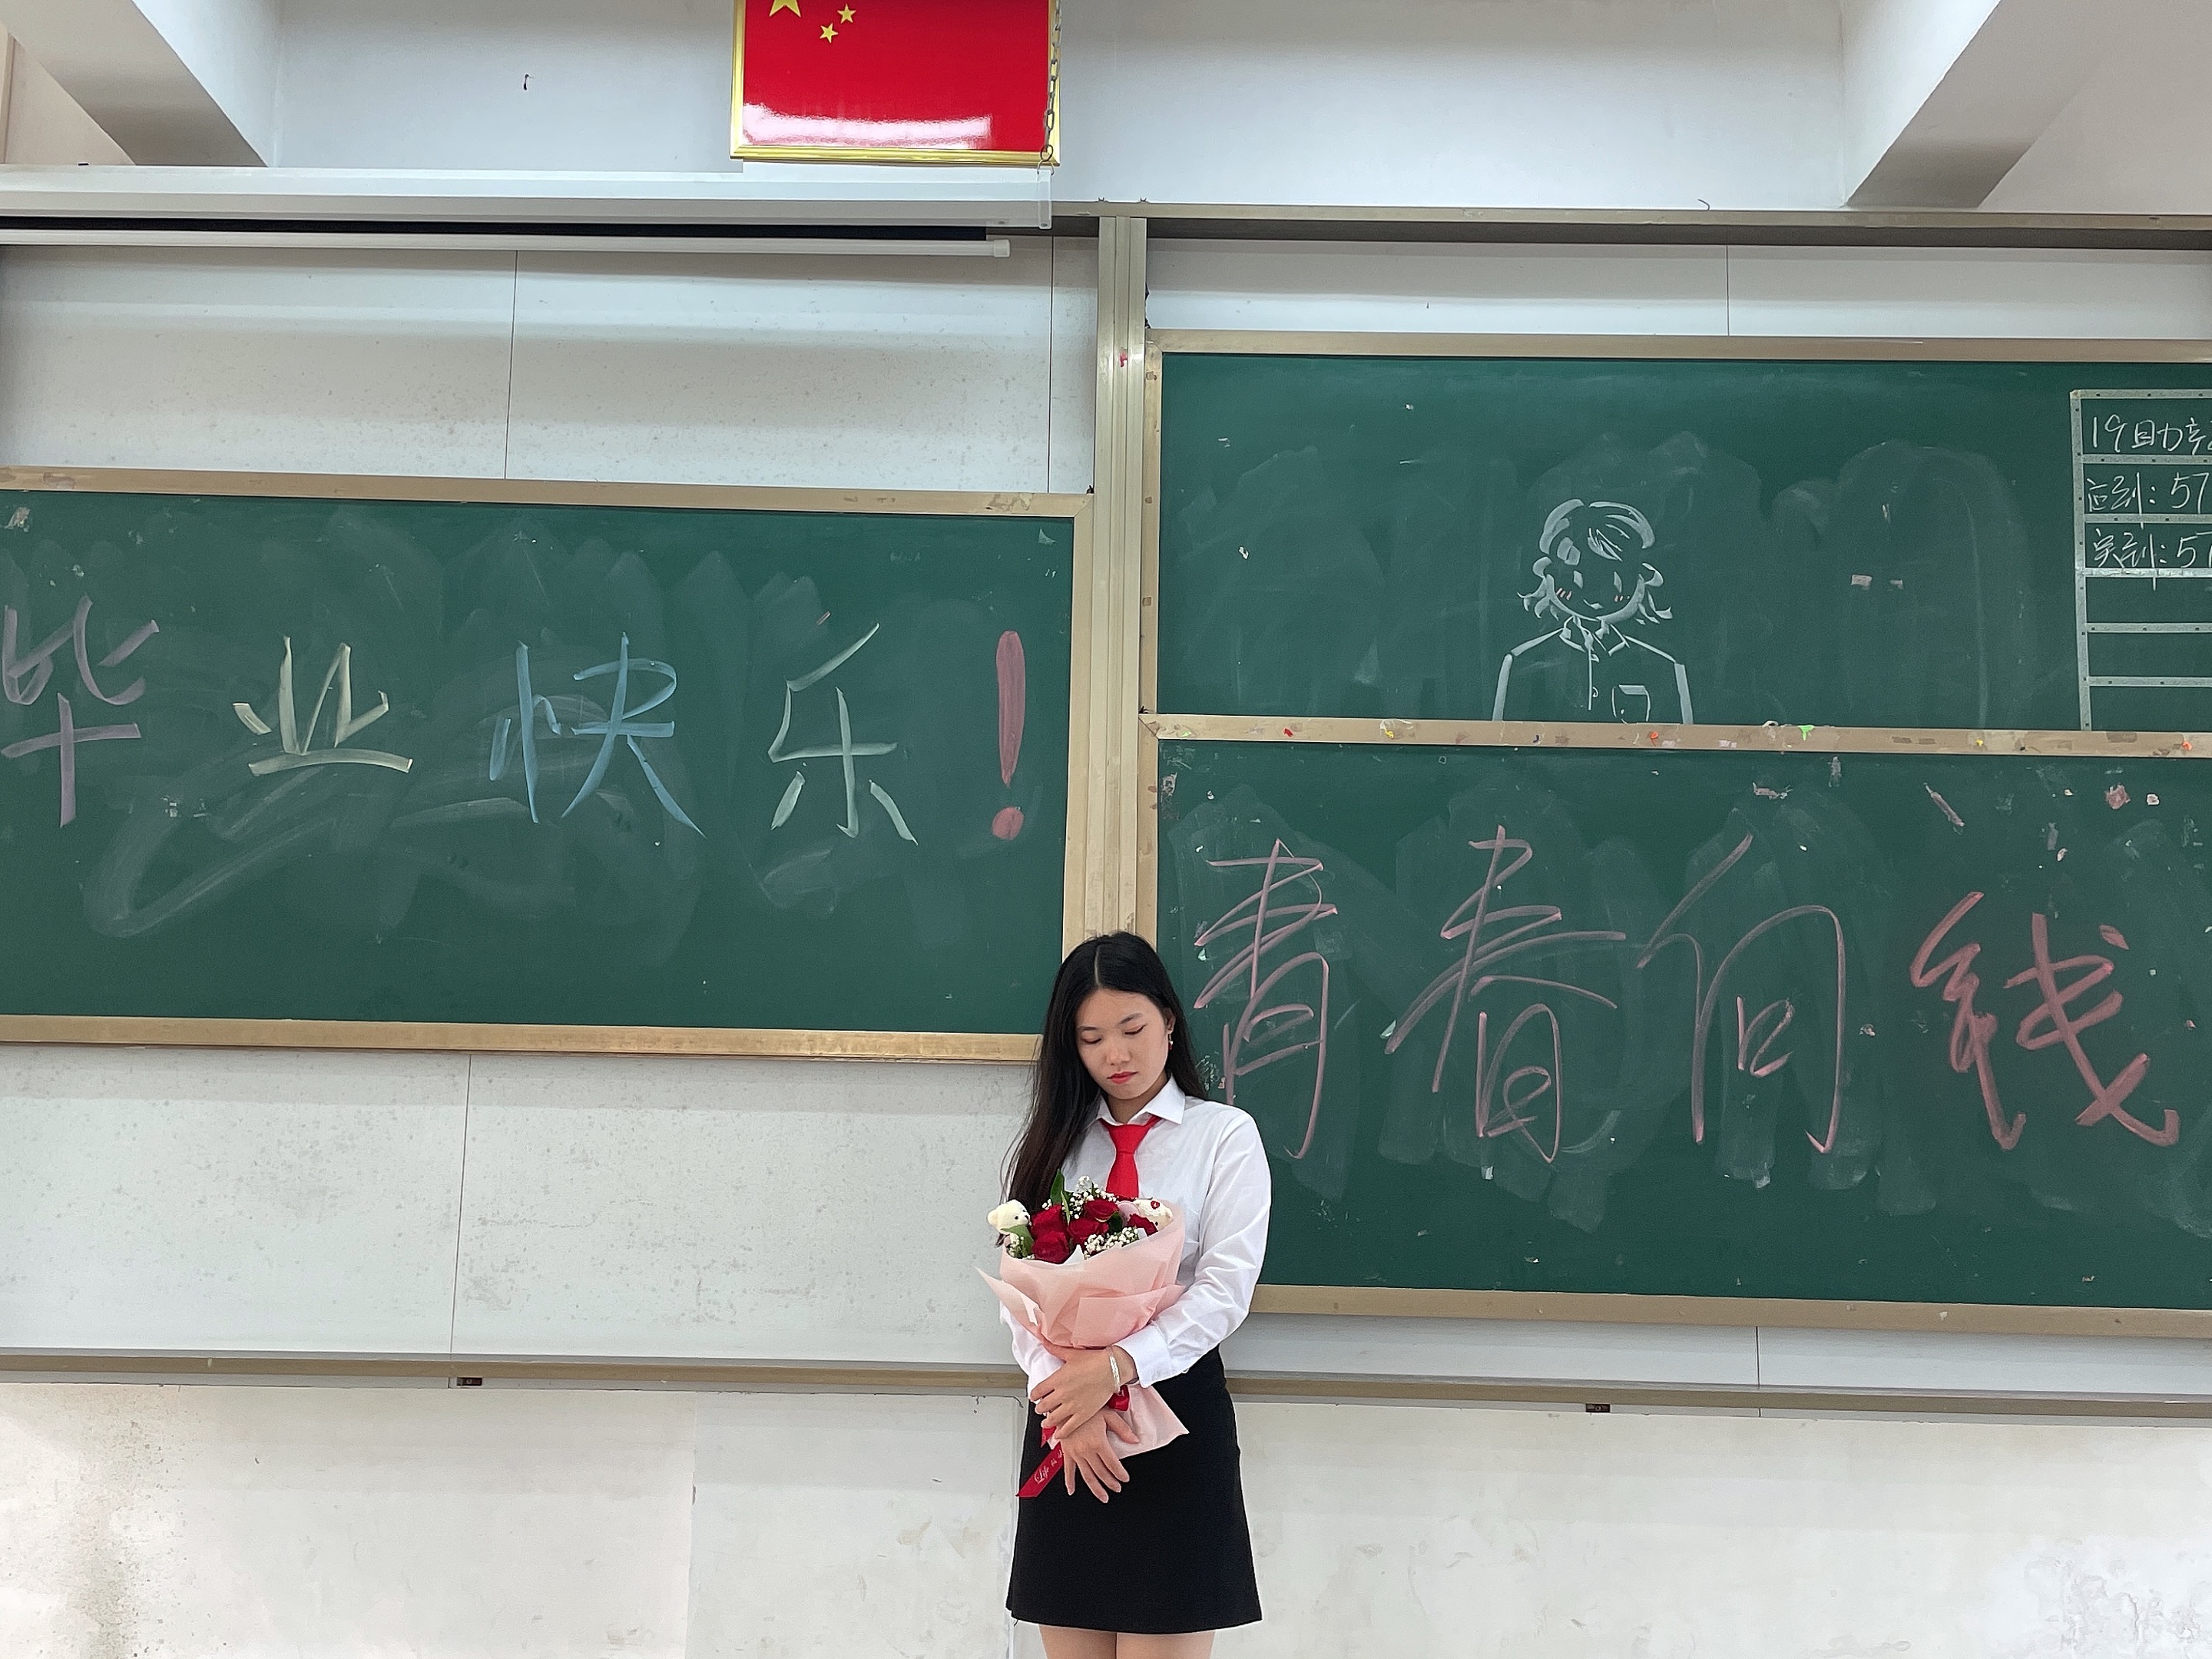 毕业快乐!
19助产
应到:57
实到:57
青春向钱